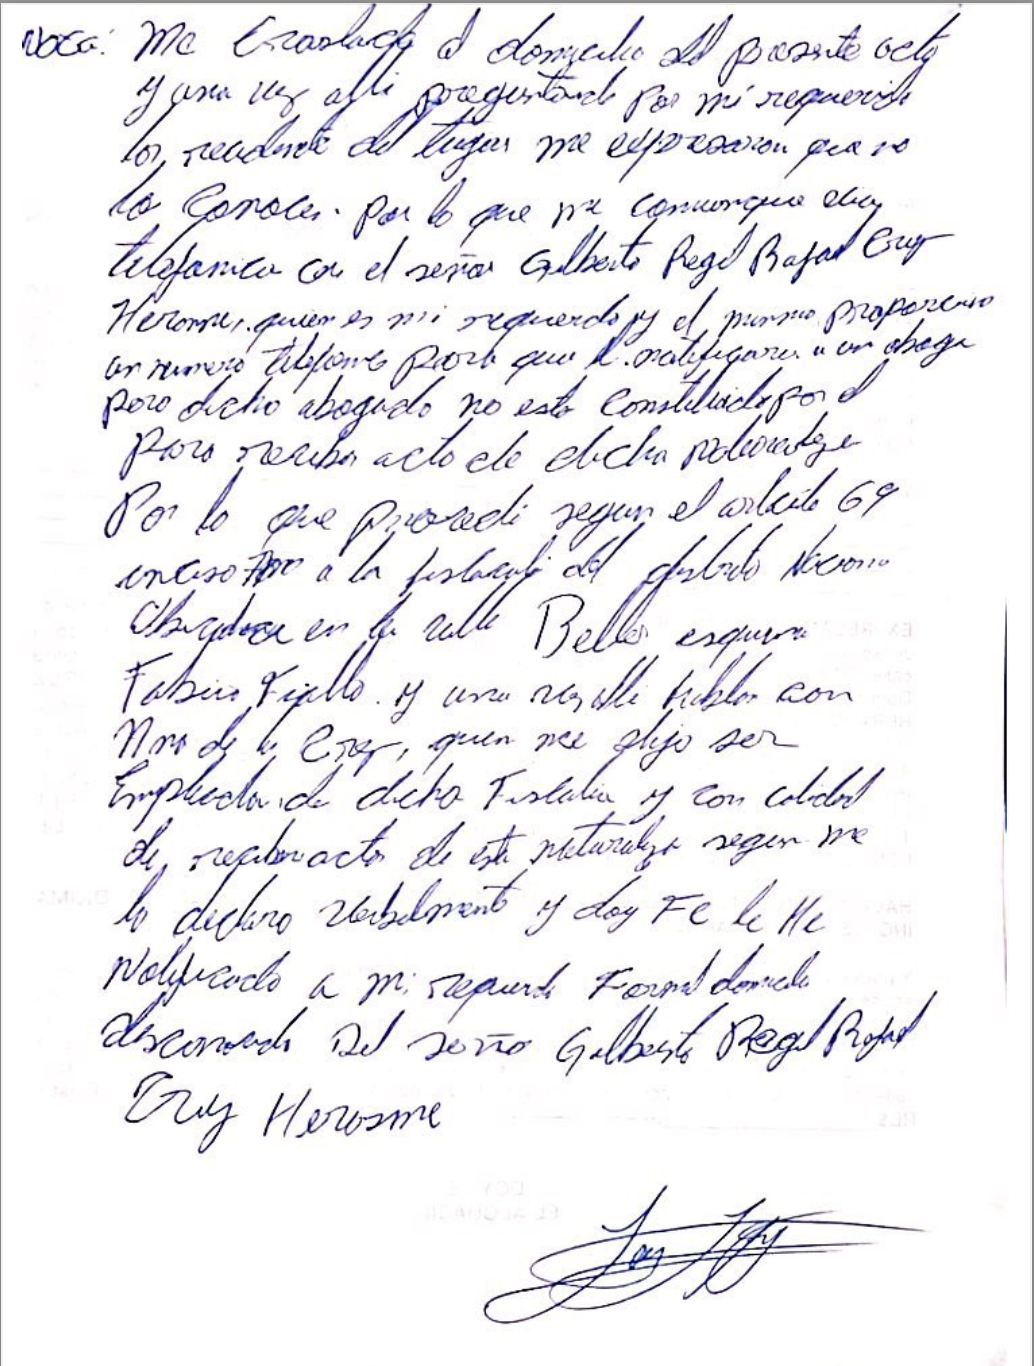 Nota: Me traslade al domicilio del presente acto
y una vez alli preguntando por mi requerido
los residente del lugar me expresaron que no
lo conocen. por lo que me comunique via
telefonica con el señor Gilberto Regil Rafael Cruz
Herasme, quien es mi requerido, y el mismo proporciono
un numero telefono para que le notificara a un abogado
pero dicho abogado no esta constituido por el
para recibir acto de dicha naturaleza
Por lo que procedi segun el articulo 69
inciso 7mo a la fiscalia del distrito Nacional
Ubicada en la calle Beller esquina
Fabio Fiallo. y una vez alli hable con
de la Cruz, quien me dijo ser
Empleada de dicha Fiscalia y con calidad
de recibir actos de esta naturaleza segun me
lo declaro verbalmente y doy Fe le He
Notificado a mi requerido Formal domicilio
desconocido Del señor Gilberto Regil Rafael
Cruz Herasme